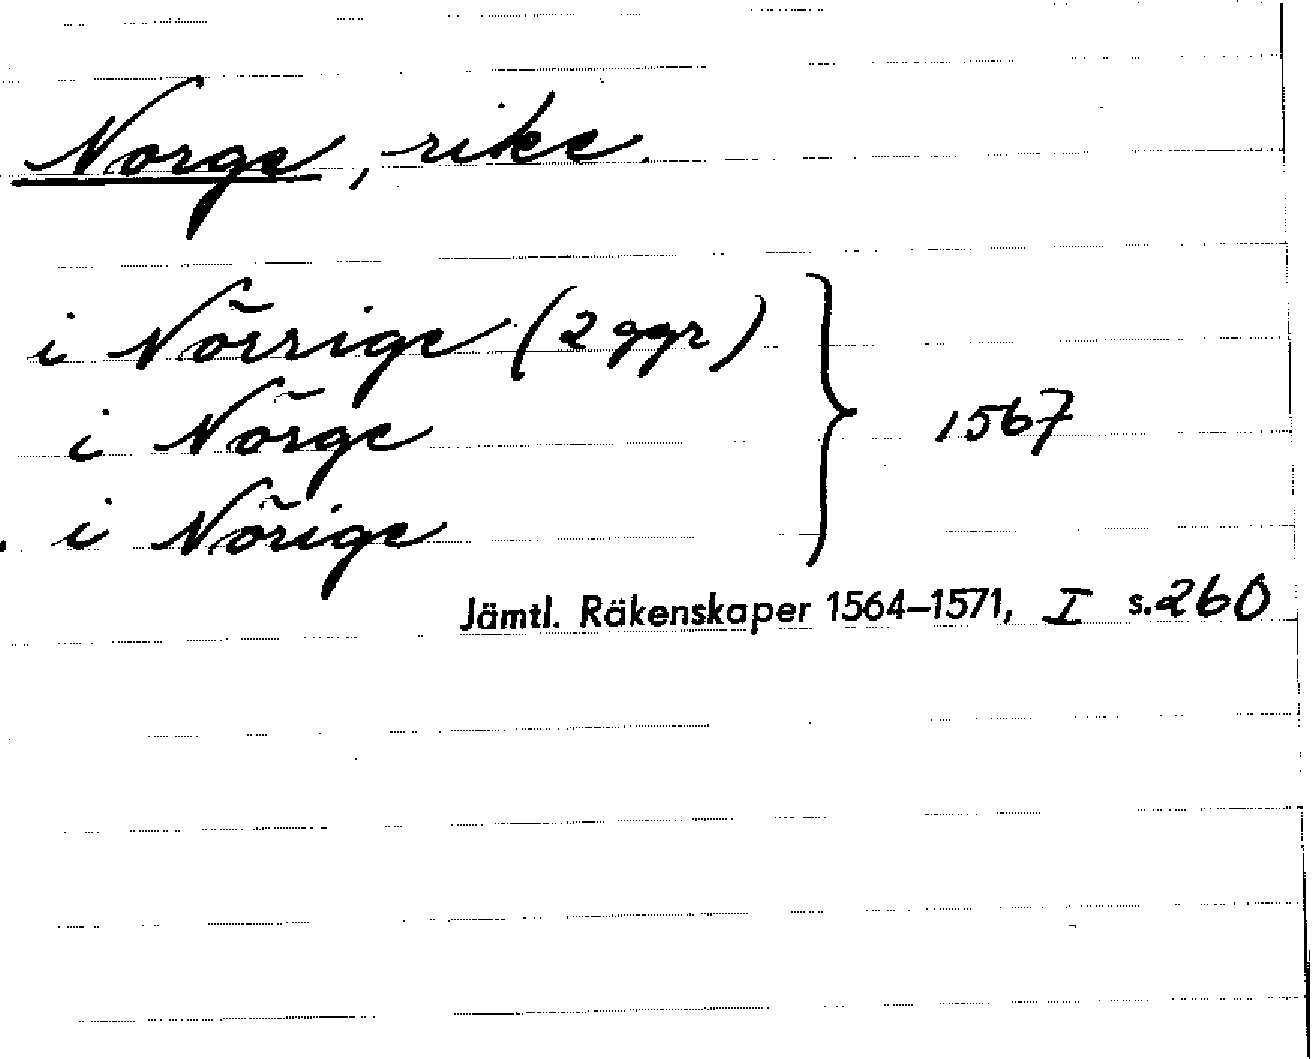 Norge, rike.
i Nõrrige (2 ggr)
i Nõrge } 1567
i Nõrige
Jämtl. Räkenskaper 1564–1571, I s. 260